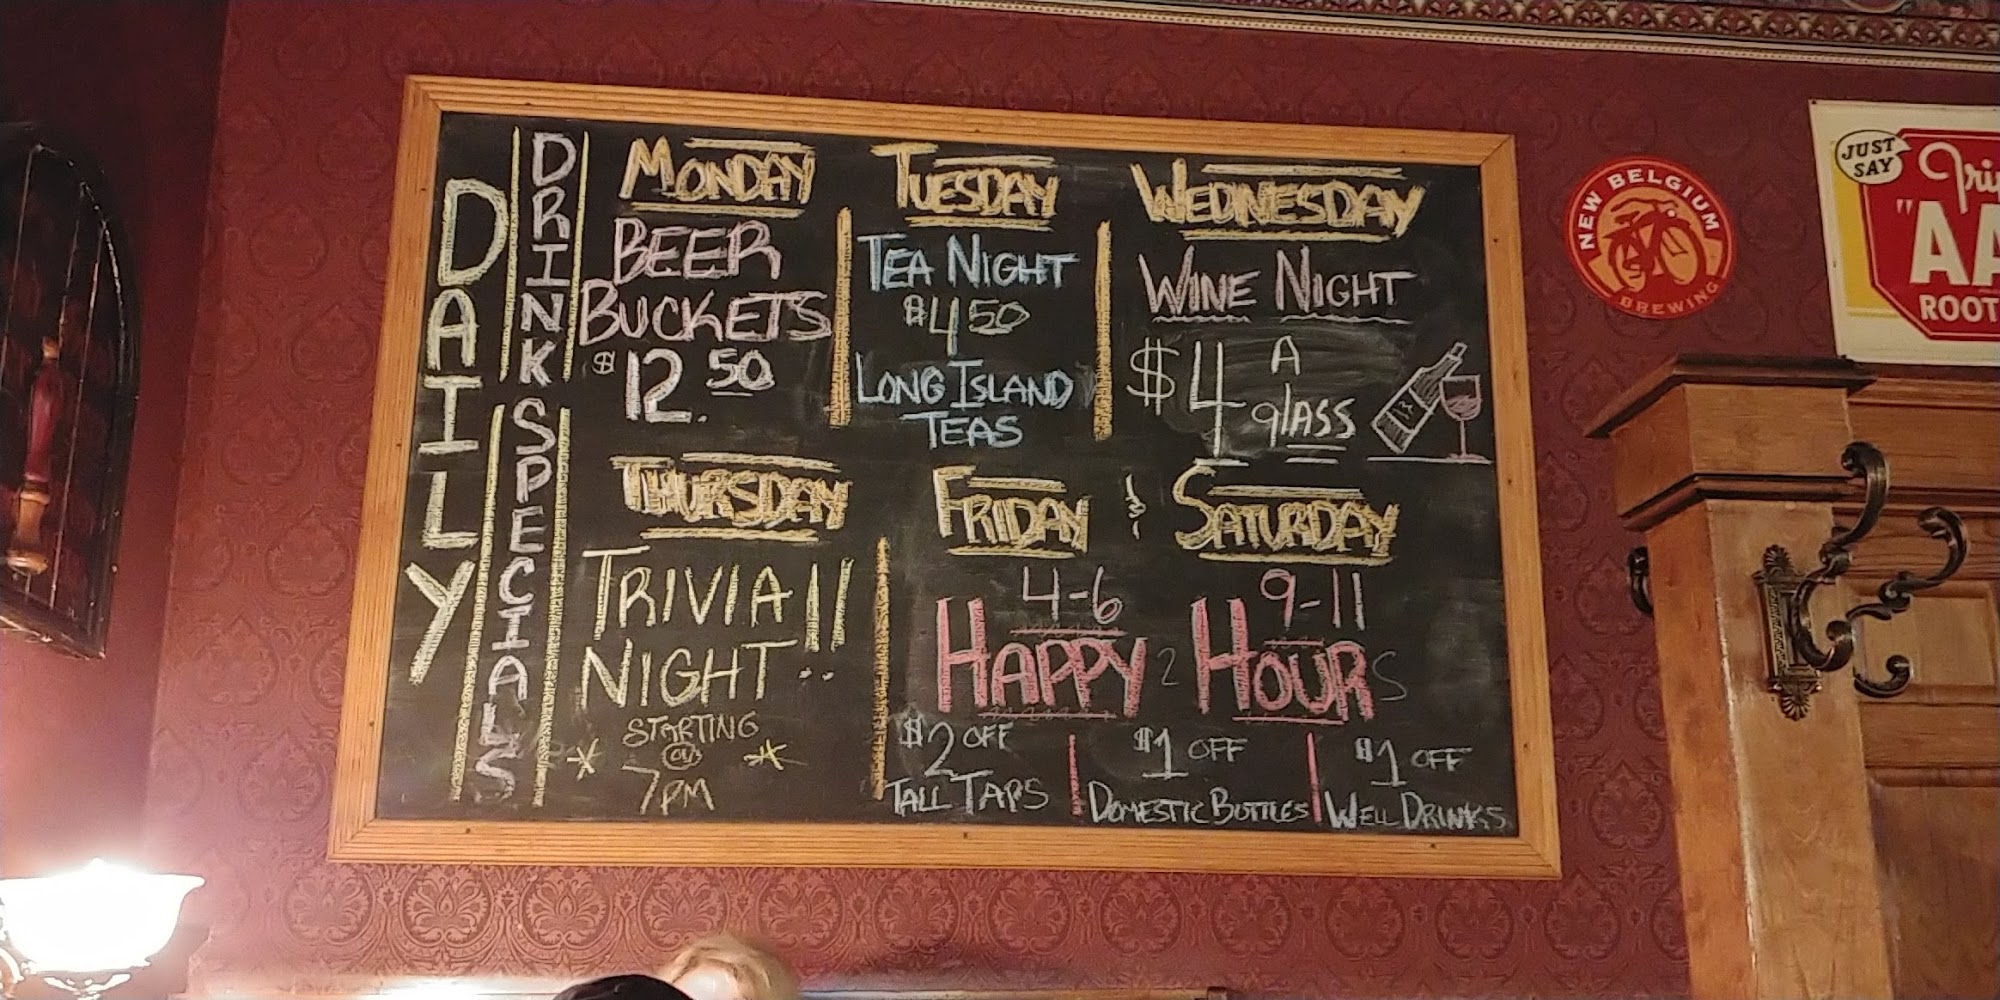 DAILY
DRINK SPECIALS
MONDAY
BEER
BUCKETS
$12.50
TUESDAY
TEA NIGHT
$450
LONG ISLAND
TEAS
WEDNESDAY
WINE NIGHT
$4 A
glASS
THURSDAY
TRIVIA
NIGHT!!
STARTING
@
* 7PM *
FRIDAY & SATURDAY
4-6 9-11
HAPPY 2 HOURS
$2 OFF
TALL TAPS
$1 OFF
DOMESTIC BOTTLES
$1 OFF
WELL DRINKS
NEW BELGIUM
BREWING
JUST
SAY
"AA
ROOT